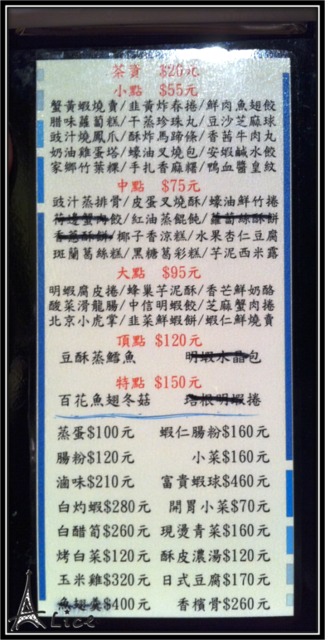 茶資 $20元
小點 $55元
蟹黃蝦燒賣/韭黃炸春捲/鮮肉魚翅餃
腊味蘿蔔糕/干蒸珍珠丸/豆沙芝麻球
豉汁燒鳳爪/酥炸馬蹄條/香茜牛肉丸
奶油雞蛋塔/蠔油叉燒包/安蝦鹹水餃
家鄉竹葉粿/手扎香麻糬/鴨血醬皇紋
中點 $75元
豉汁蒸排骨/皮蛋叉燒酥/蠔油鮮竹捲
荷邊蟹肉餃/紅油蒸餛飩/蘿蔔絲酥餅
香蔥酥餅/椰子香涼糕/水果杏仁豆腐
斑蘭葛絲糕/黑糖葛彩糕/芋泥西米露
大點 $95元
明蝦腐皮捲/蜂巢芋泥酥/香芒鮮奶酪
酸菜滑龍腸/中信明蝦餃/芝麻蟹肉捲
北京小虎掌/韭菜鮮蝦餅/蝦仁鮮燒賣
頂點 $120元
豆酥蒸鱈魚 明蝦水晶包
特點 $150元
百花魚翅冬菇 培根明蝦捲
蒸蛋$100元 蝦仁腸粉$160元
腸粉$120元 小菜$160元
滷味$210元 富貴蝦球$460元
白灼蝦$280元 開胃小菜$70元
白醋筍$260元 現燙青菜$160元
烤白菜$120元 酥皮濃湯$120元
玉米雞$320元 日式豆腐$170元
魚翅羹$400元 香檳骨$260元
Alice